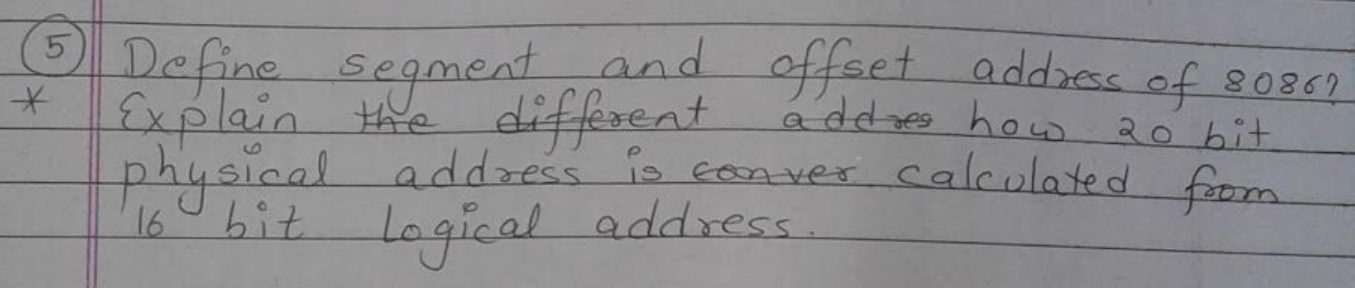 5 Define segment and offset address of 8086?
* Explain the different addres how 20 bit
physical address is conver calculated from
16 bit Logical address.